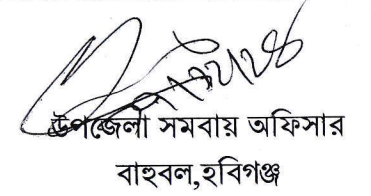 উপজেলা সমবায় অফিসার
বাহুবল,হবিগঞ্জ